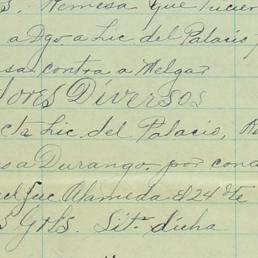 s. Remesa que hicier
a Dgo a Lic del Palacio
sa contra a Melgar
dores Diversos
cta Lic. del Palacio, Re
o a Durango. por cond
el Fue Alameda el 24 de
s Grbs. Litr dicha